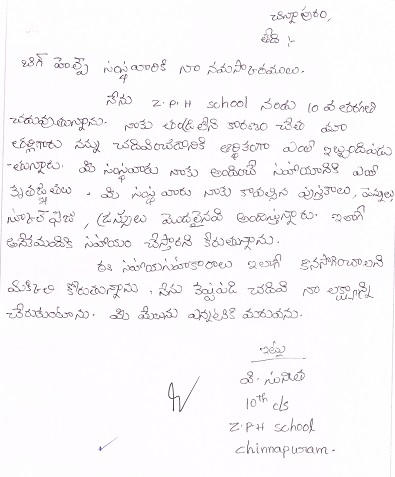 చిన్నాపురం,
తేది :-
బిగ్ హెల్ప్ సంస్థవారికి నా నమస్కారములు.
నేను Z.P.H school నందు 10 వ తరగతి
చదువుతున్నాను. నాకు తండ్రి లేని కారణం చేత మా
తల్లిగారు నన్ను చదివించడానికి ఆర్థికంగా ఎంతో ఇబ్బందిపడు
-తున్నారు. మీ సంస్థవారు నాకు అందించే సహాయానికి ఎంతో
కృతజ్ఞతలు. మీ సంస్థ వారు నాకు కావల్సిన పుస్తకాలు, పెన్నులు,
స్కూల్ ఫీజు, డ్రస్సులు మొదలైనవి అందిస్తున్నారు. ఇలాగే
అనేకమందికి సహాయం చేస్తారని కోరుతున్నాను.
ఈ సహాయసహకారాలు ఇలాగే కొనసాగించాలని
మిక్కిలి కోరుతున్నాను. నేను కష్టపడి చదివి నా లక్ష్యాన్ని
చేరుకుంటాను. మీ మేలును ఎన్నటికి మరువను.
ఇట్లు
సునీత
10th c/s
Z.P.H school
chinnapuram.